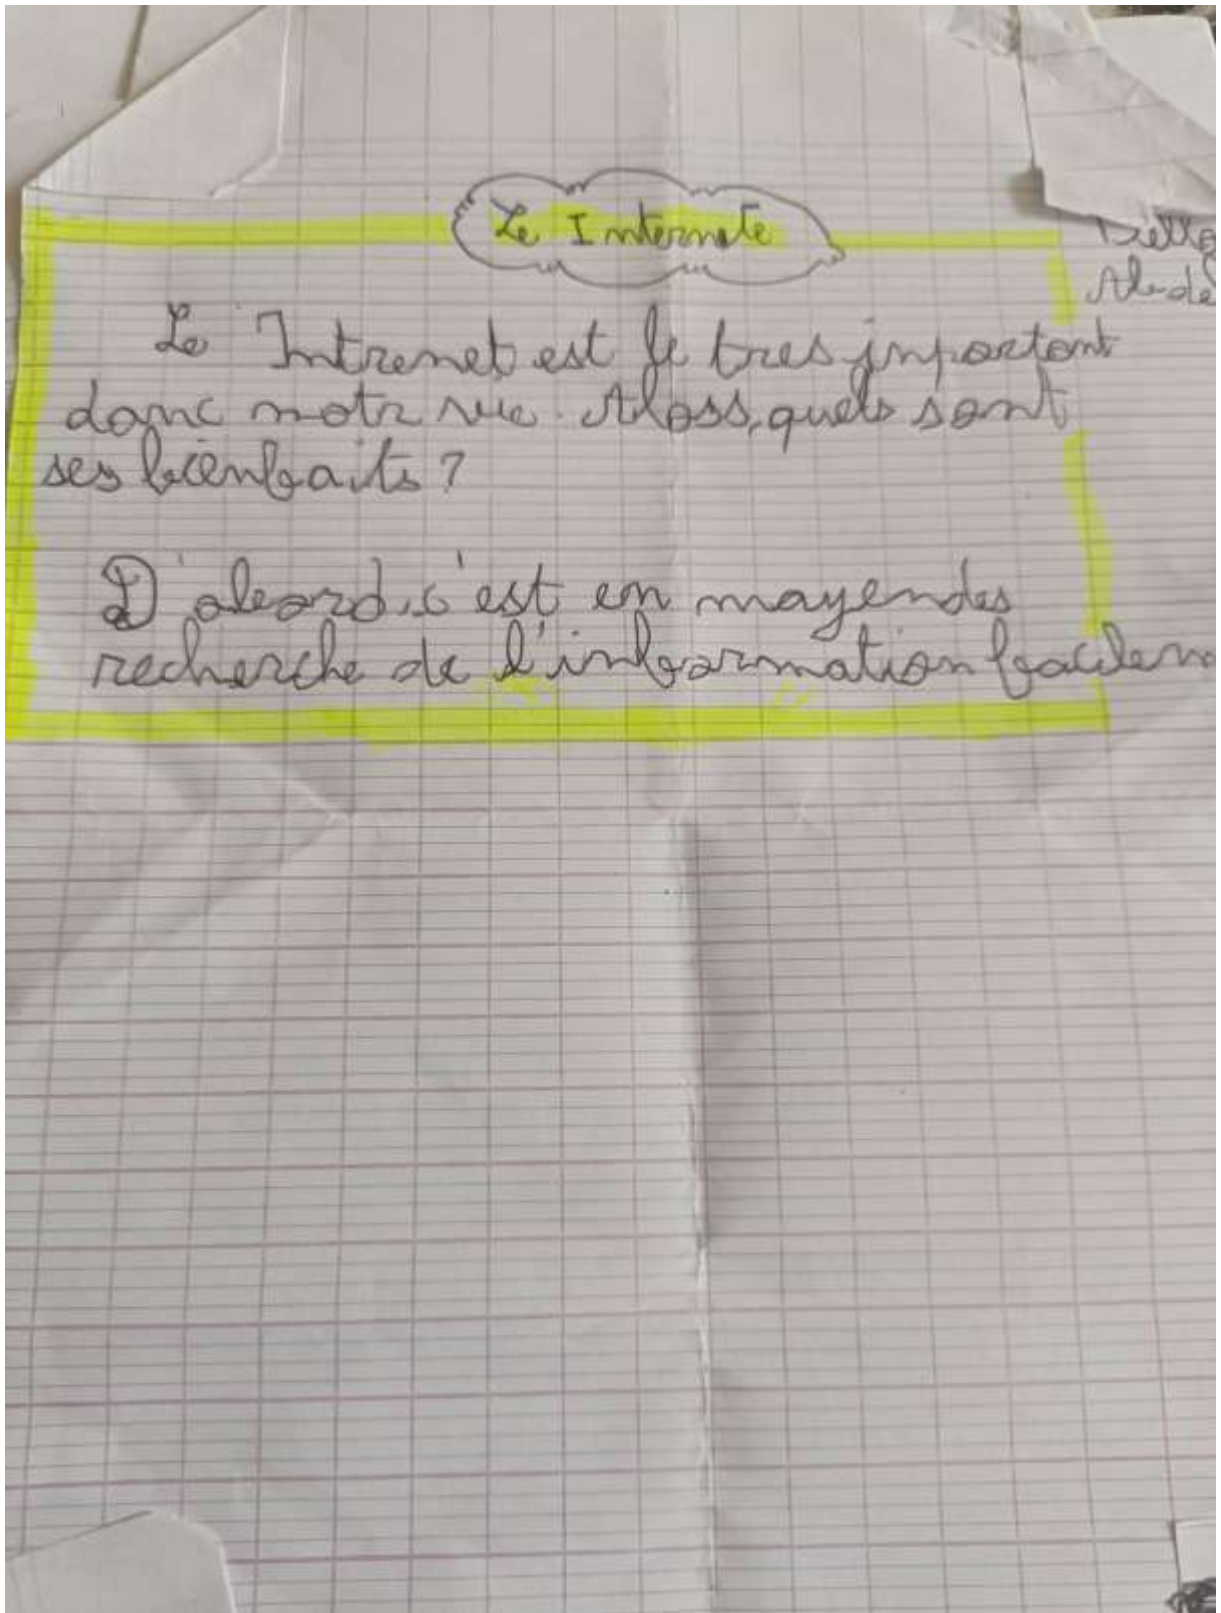 Le Internete
Le Intrenet est le tres inportant
danc notr vie. Alors, quels sont
ses bienfaits ?
D'abord, c'est en mayendes
recherche de l'information facilem